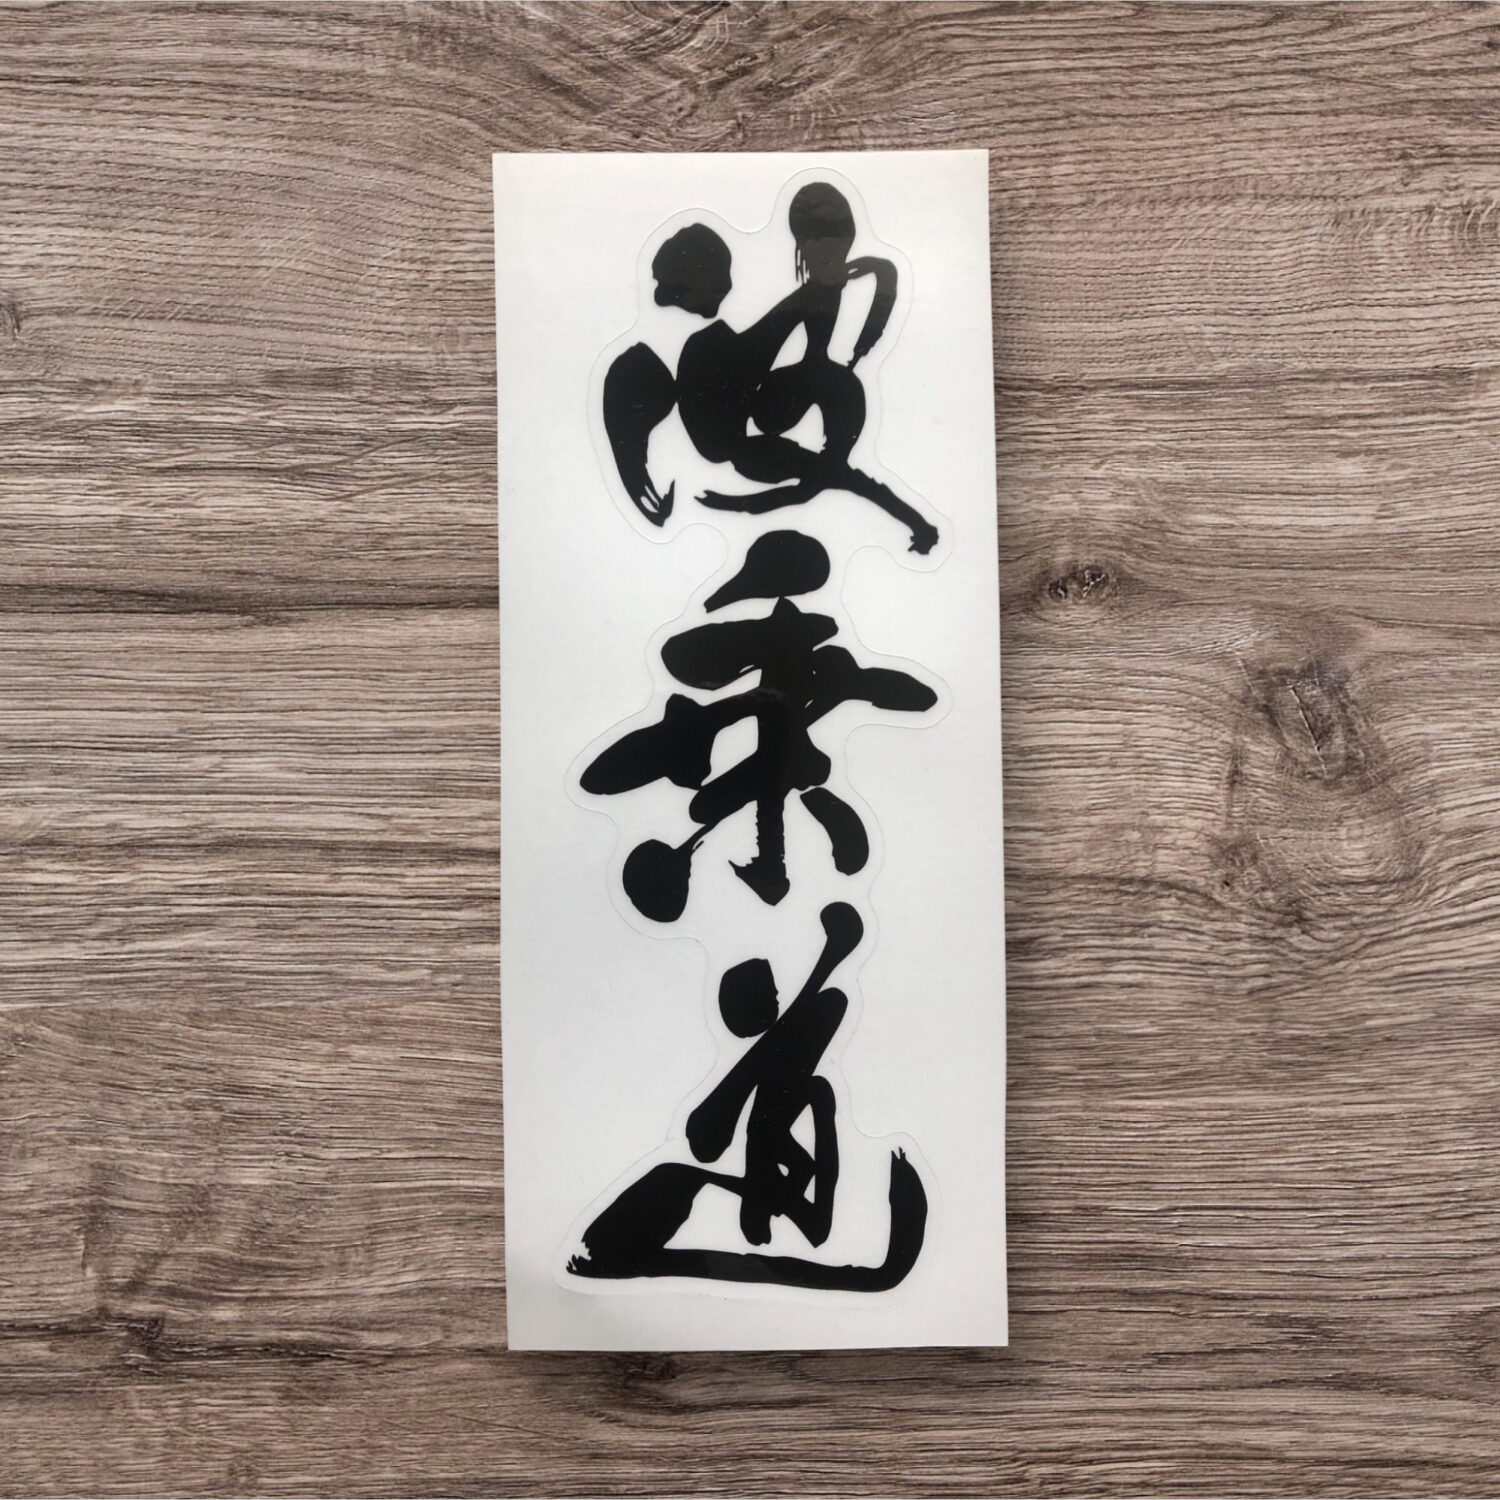 波乗道